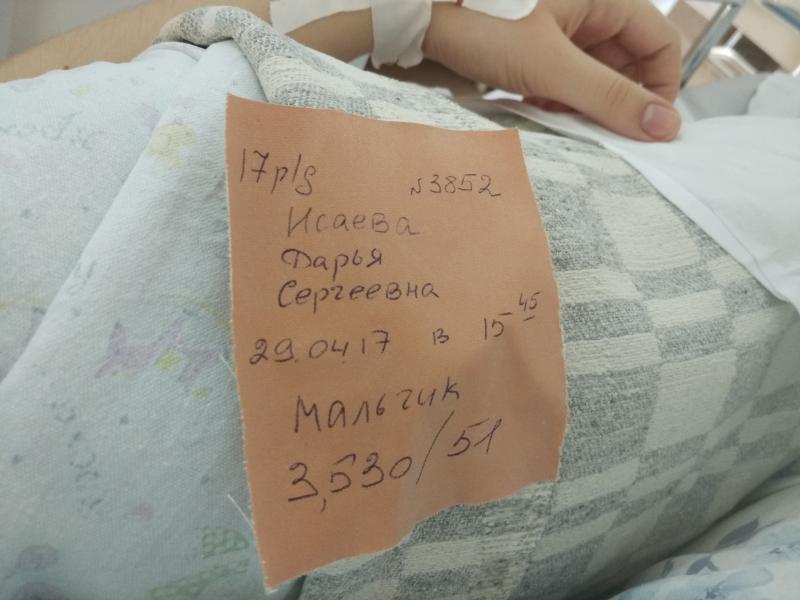 17р/з №3852
Исаева
Дарья
Сергеевна
29.04.17 в 15 45
Мальчик
3,530/51